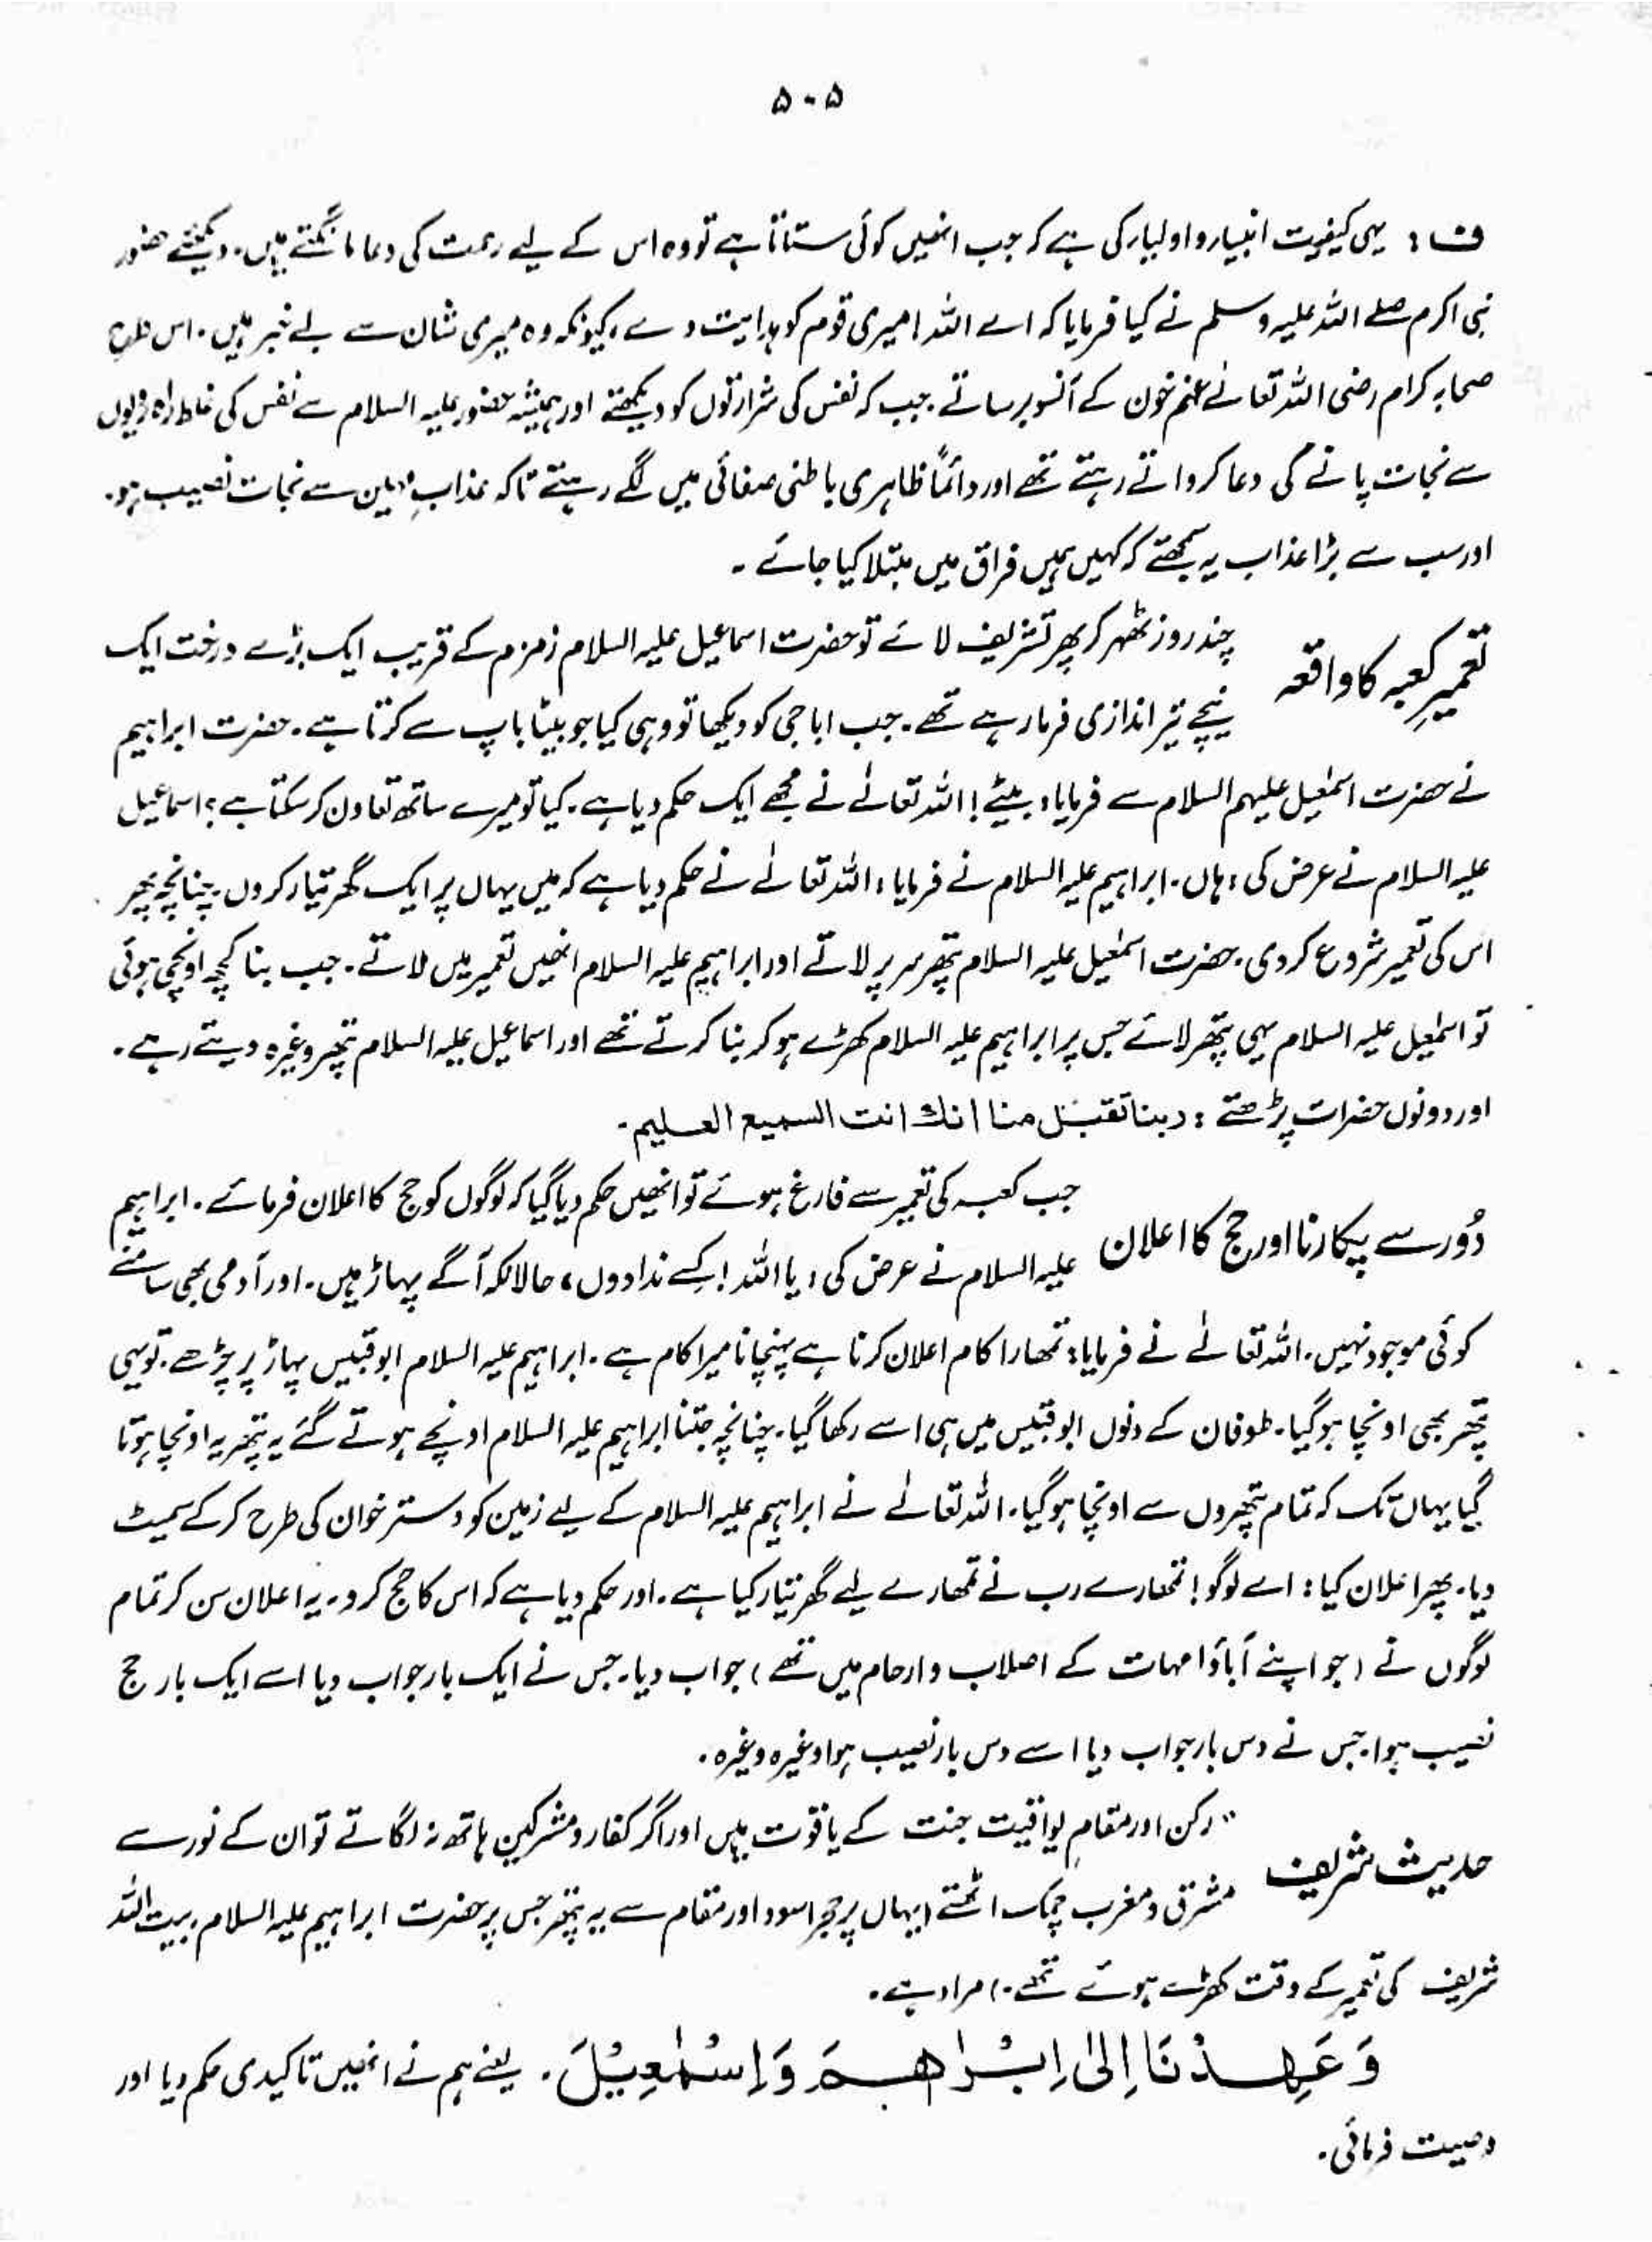 ۵۰۵
ف: یہی کیفیت انبیاء و اولیاء کی ہے کہ جب انھیں کوئی ستاتا ہے تو وہ اس کے لیے رحمت کی دعا مانگتے ہیں۔ دیکھئے حضور
نبی اکرم صلے اللہ علیہ وسلم نے کیا فرمایا کہ اے اللہ! میری قوم کو ہدایت دے، کیونکہ وہ میری شان سے بے خبر ہیں۔ اس طرح
صحابہ کرام رضی اللہ تعالےٰ عنہم خون کے آنسو برساتے۔ جب کہ نفس کی شرارتوں کو دیکھتے اور ہمیشہ حضور علیہ السلام سے نفس کی غلط راہ رویوں
سے نجات پانے کی دعا کرواتے رہتے تھے اور دائماً ظاہری باطنی صفائی میں لگے رہتے تاکہ عذابِ سے نجات نصیب ہو۔
اور سب سے بڑا عذاب یہ سمجھتے کہ کہیں ہمیں فراق میں مبتلا کیا جائے۔
تعمیرِ کعبہ کا واقعہ چند روز ٹھہر کر پھر تشریف لائے تو حضرت اسماعیل علیہ السلام زمزم کے قریب ایک بڑے درخت ایک
نیچے تیر اندازی فرما رہے تھے۔ جب ابا جی کو دیکھا تو وہی کیا جو بیٹا باپ سے کرتا ہے۔ حضرت ابراہیم
نے حضرت اسمٰعیل علیہم السلام سے فرمایا، بیٹے! اللہ تعالےٰ نے مجھے ایک حکم دیا ہے۔ کیا تو میرے ساتھ تعاون کر سکتا ہے؟ اسماعیل
علیہ السلام نے عرض کی، ہاں۔ ابراہیم علیہ السلام نے فرمایا، اللہ تعالےٰ نے حکم دیا ہے کہ میں یہاں پر ایک گھر تیار کروں۔ چنانچہ پھر
اس کی تعمیر شروع کردی۔ حضرت اسمٰعیل علیہ السلام پتھر سر پر لاتے اور ابراہیم علیہ السلام انھیں تعمیر میں لاتے۔ جب بنا کچھ اونچی ہوئی
تو اسمٰعیل علیہ السلام یہی پتھر لائے جس پر ابراہیم علیہ السلام کھڑے ہو کر بنا کرتے تھے اور اسماعیل علیہ السلام پتھر وغیرہ دیتے رہے۔
اور دونوں حضرات پڑھتے : ربنا تقبل منا انك انت السميع العليم۔
دُور سے پکارنا اور حج کا اعلان جب کعبہ کی تعمیر سے فارغ ہوئے تو انھیں حکم دیا گیا کہ لوگوں کو حج کا اعلان فرمائے۔ ابراہیم
علیہ السلام نے عرض کی، یا اللہ! کسے ندا دوں، حالانکہ آگے پہاڑ ہیں۔ اور آدمی بھی سامنے
کوئی موجود نہیں۔ اللہ تعالےٰ نے فرمایا: تمھارا کام اعلان کرنا ہے پہنچانا میرا کام ہے۔ ابراہیم علیہ السلام ابو قبیس پہاڑ پر چڑھے۔ تو یہی
پتھر بھی اونچا ہوگیا۔ طوفان کے دنوں ابو قبیس میں ہی اسے رکھا گیا۔ چنانچہ جتنا ابراہیم علیہ السلام اونچے ہوتے گئے یہ پتھر یہ اونچا ہوتا
گیا یہاں تک کہ تمام پتھروں سے اونچا ہوگیا۔ اللہ تعالےٰ نے ابراہیم علیہ السلام کے لیے زمین کو دستر خوان کی طرح کرکے سمیٹ
دیا۔ پھر اعلان کیا: اے لوگو! تمھارے رب نے تمھارے لیے گھر تیار کیا ہے۔ اور حکم دیا ہے کہ اس کا حج کرو۔ یہ اعلان سن کر تمام
لوگوں نے (جو اپنے آباؤ امہات کے اصلاب و ارحام میں تھے) جواب دیا۔ جس نے ایک بار جواب دیا اسے ایک بار حج
نصیب ہوا۔ جس نے دس بار جواب دیا اسے دس بار نصیب ہوا وغیرہ وغیرہ۔
حدیث شریف "رکن اور مقامِ یواقیت جنت کے یاقوت ہیں اور اگر کفار و مشرکین ہاتھ نہ لگاتے تو ان کے نور سے
مشرق و مغرب چمک اٹھتے (یہاں پر حجر اسود اور مقام سے یہ پتھر جس پر حضرت ابراہیم علیہ السلام بیت اللہ
شریف کی تعمیر کے وقت کھڑے ہوئے تھے۔) مراد ہے۔
وَ عَهِدْنَا اِلٰى اِبْرَاهِمَ وَاِسْمٰعِيْلَ۔ یعنے ہم نے انھیں تاکیدی حکم دیا اور
وصیت فرمائی۔